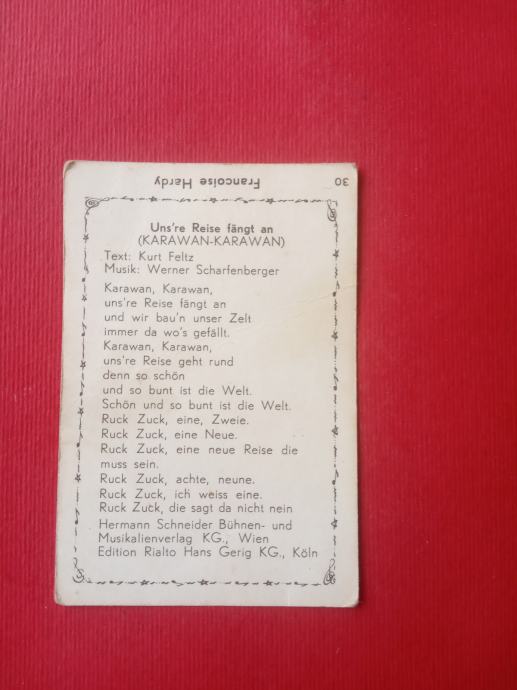 30
Francoise Hardy
Uns're Reise fängt an
(KARAWAN-KARAWAN)
Text: Kurt Feltz
Musik: Werner Scharfenberger
Karawan, Karawan,
uns're Reise fängt an
und wir bau'n unser Zelt
immer da wo's gefällt.
Karawan, Karawan,
uns're Reise geht rund
denn so schön
und so bunt ist die Welt.
Schön und so bunt ist die Welt.
Ruck Zuck, eine, Zweie.
Ruck Zuck, eine Neue.
Ruck Zuck, eine neue Reise die
muss sein.
Ruck Zuck, achte, neune.
Ruck Zuck, ich weiss eine.
Ruck Zuck, die sagt da nicht nein
Hermann Schneider Bühnen- und
Musikalienverlag KG., Wien
Edition Rialto Hans Gerig KG., Köln